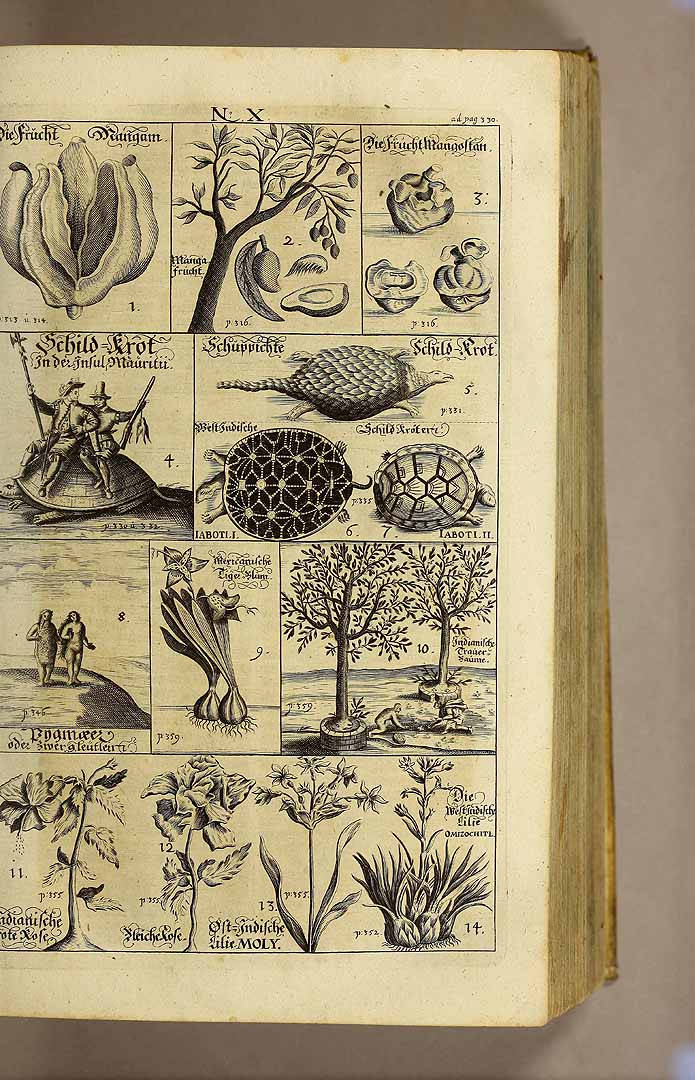 N: X.
ad pag 330.
Die Frücht Mangam.
1.
p. 313 ü 314.
Manga
frücht.
2.
p. 316.
Die frücht Mangostan.
3.
p. 316.
Schild-Krot
In der Insul Mauritii.
4.
p. 330 ü. 332.
Schuppichte Schild-Krot.
5.
p. 331.
West Indische Schild Kröten
p. 335
IABOTI. I. 6. 7. IABOTI. II.
8
p. 346.
Pygmæer
oder Zwergleutlein
Mexicanische
Tiger Blum.
9.
p. 359.
Indianische
Trauer
Bäume.
10.
p. 359.
11.
p. 355
Indianische
rote Rose
12.
p. 355
Bleiche Rose.
13.
p. 355.
Ost-Indische
Lilie MOLY.
Die
West Indische
Lilie
OMIZOCHITL
p. 352.
14.